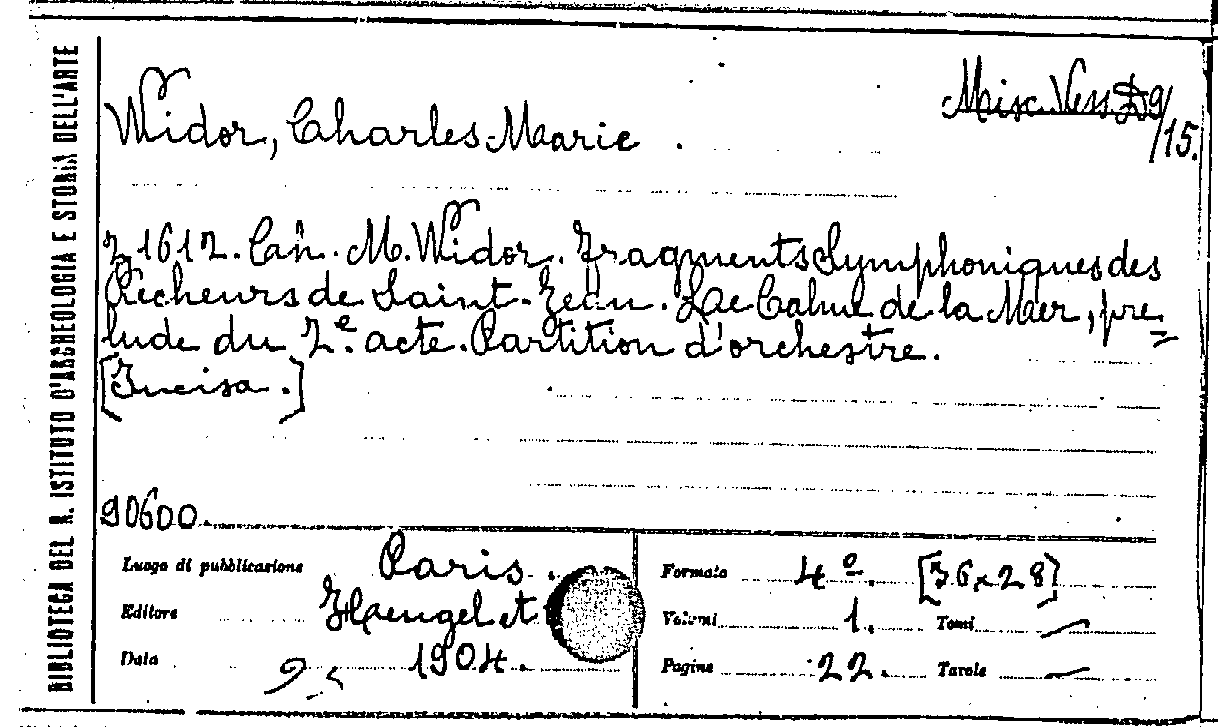 BIBLIOTECA DEL R. ISTITUTO D'ARCHEOLOGIA E STORIA DELL'ARTE
Misc. Vess D9/15.
Widor, Charles-Marie.
1612. Ch. M. Widor. Fragments Symphoniques des
Pêcheurs de Saint-Jean. Le Calme de la Mer, pre=
lude du 2.e acte. Partition d'orchestre.
[Incisa.]
90600.
Luogo di pubblicazione Paris.
Editore Heugel et
Data 1904.
Formato 4º. [36x28]
Volumi 1. Tomi —
Pagine 22. Tavole —